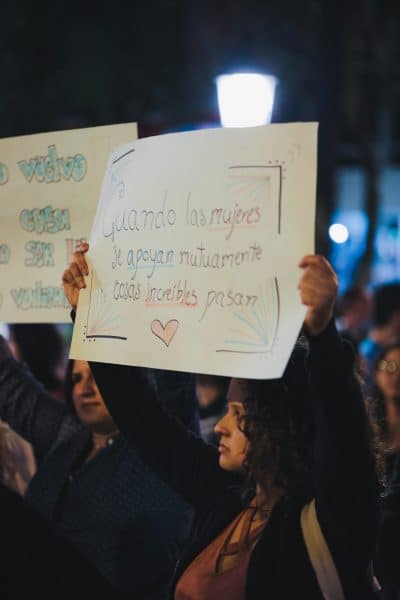 vuelvo
CASA
SER
Cuando las mujeres
se apoyan mutuamente
cosas increíbles pasan